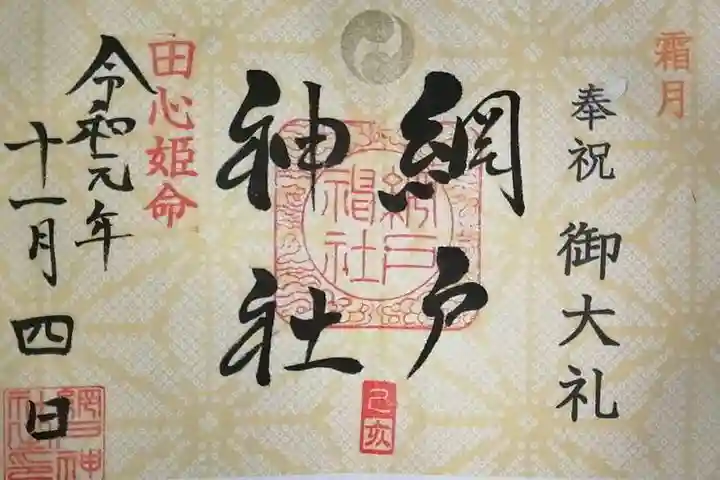 霜月
奉祝 御大礼
網戸
神社
田心姫命
令和元年
十一月四日
網戸
神社
己亥